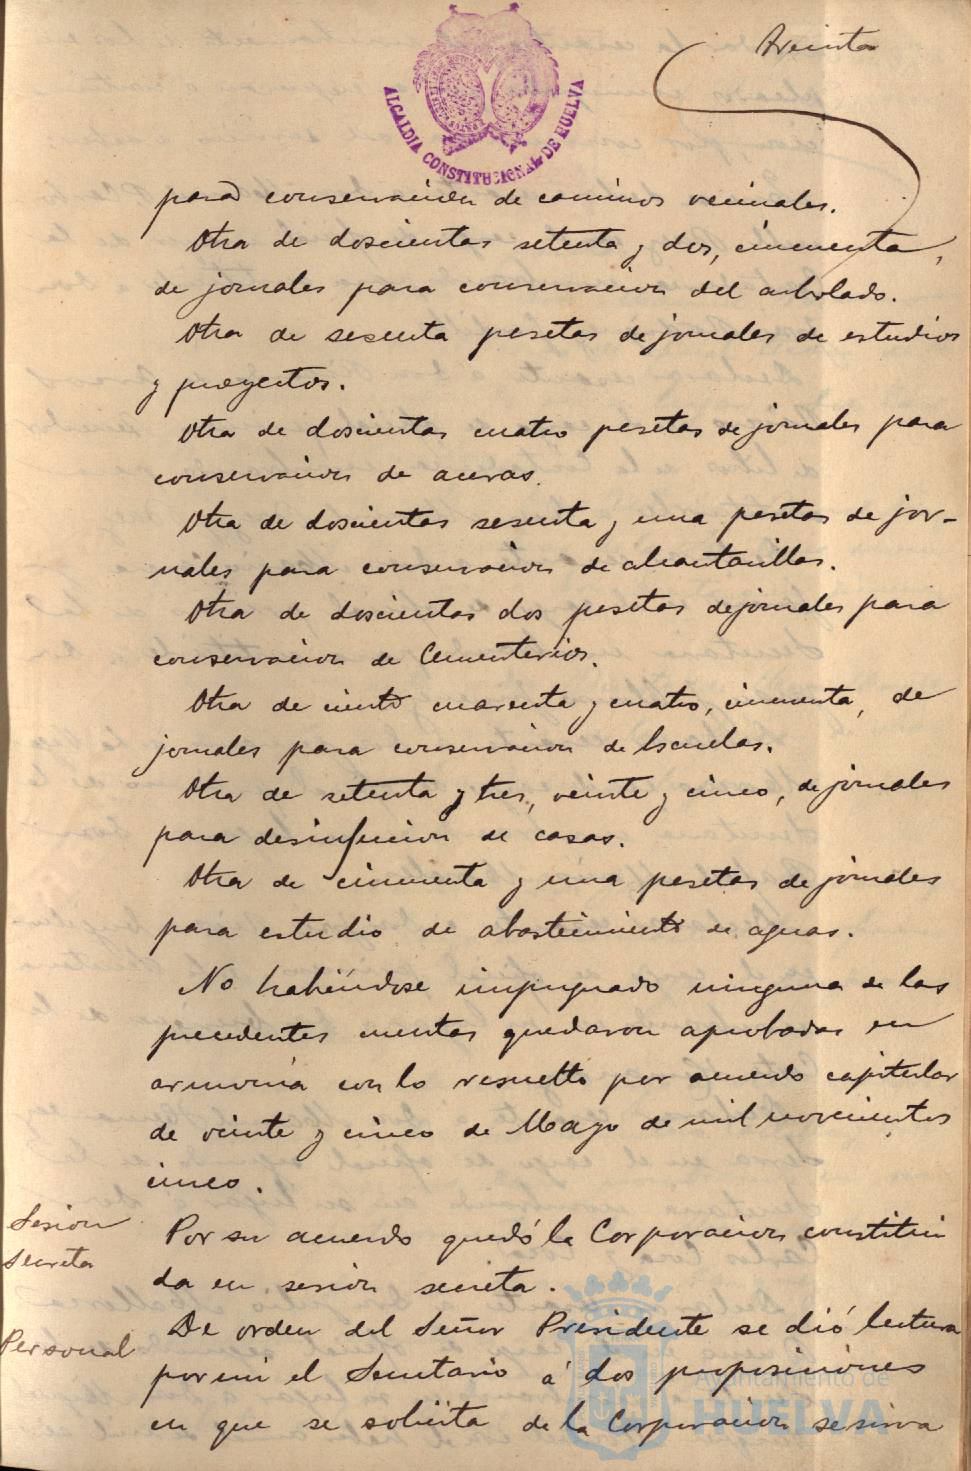 Treinta
ALCALDIA CONSTITUCIONAL DE HUELVA
para conservacion de caminos vecinales.
Otra de doscientas setenta y dos, cincuenta,
de jornales para conservacion del arbolado.
Otra de sesenta pesetas de jornales de estudios
y proyectos.
Otra de doscientas cuatro pesetas de jornales para
conservacion de aceras.
Otra de doscientas sesenta y una pesetas de jor-
nales para conservacion de alcantarillas.
Otra de doscientas dos pesetas de jornales para
conservacion de Cementerios.
Otra de ciento cuarenta y cuatro, cincuenta, de
jornales para conservacion de Escuelas.
Otra de setenta y tres, veinte y cinco, de jornales
para desinfeccion de casas.
Otra de cincuenta y una pesetas de jornales
para estudio de abastecimiento de aguas.
No habiéndose impugnado ninguna de las
precedentes cuentas quedaron aprobadas en
armonía con lo resuelto por acuerdo capitular
de veinte y cinco de Mayo de mil novecientos
cinco.
Sesion
Secreta
Por su acuerdo quedó la Corporacion constitui
da en sesion secreta.
Personal
De orden del Señor Presidente se dió lectura
por mi el Secretario á dos proposiciones
en que se solicita de la Corporacion se sirva
Ayuntamiento de
HUELVA